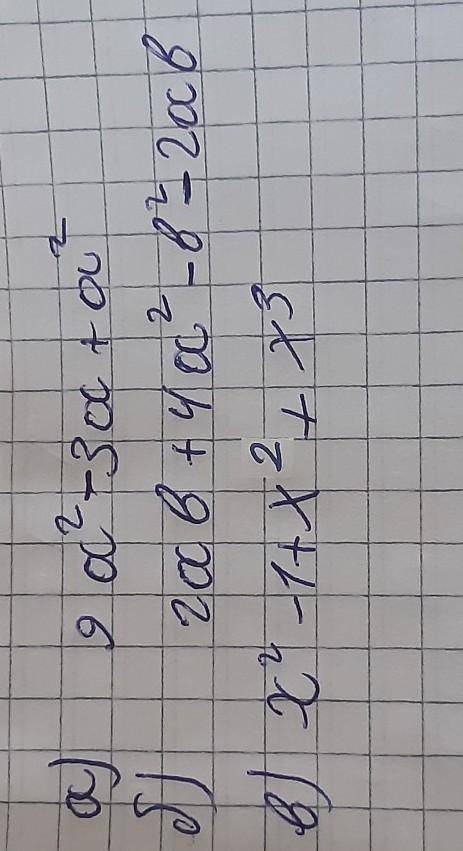 а) 9a² - 3a + a²
б) 2ав + 4a² - в² - 2ав
в) x² - 1 + x² + x³